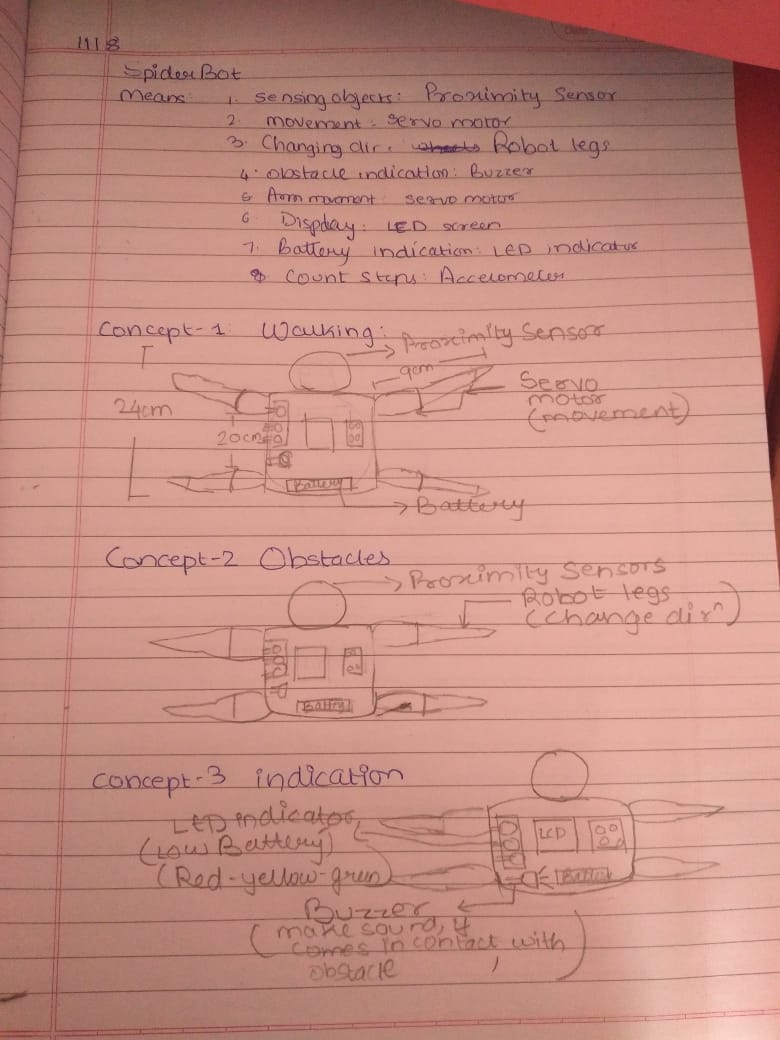 11/8
Spider Bot
Means: 1. sensing objects: Proximity Sensor
2. movement: servo motor
3. Changing dir. wheels Robot legs
4. obstacle indication: Buzzer
5 Arm movement servo motor
6 Display: LED screen
7. Battery indication: LED indicator
8 Count Steps: Accelometer
Concept-1: Walking:
Proximity Sensor
9cm
Servo
motor
(movement)
24cm
20cm
Battery
Battery
Concept-2 Obstacles
Proximity Sensors
Robot legs
(change dirn)
Battry
Concept-3 indication
LED indicator
(Low Battery)
(Red-yellow-green)
LCD
Buzzer
(make sound, if
comes in contact with
obstacle)